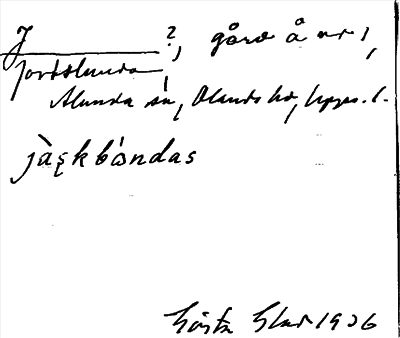 J ?, gård å nr 1,
Jordslunda
Alunda sn, Olands hd, Upps. l.
jàskbóndas
Gösta 1936